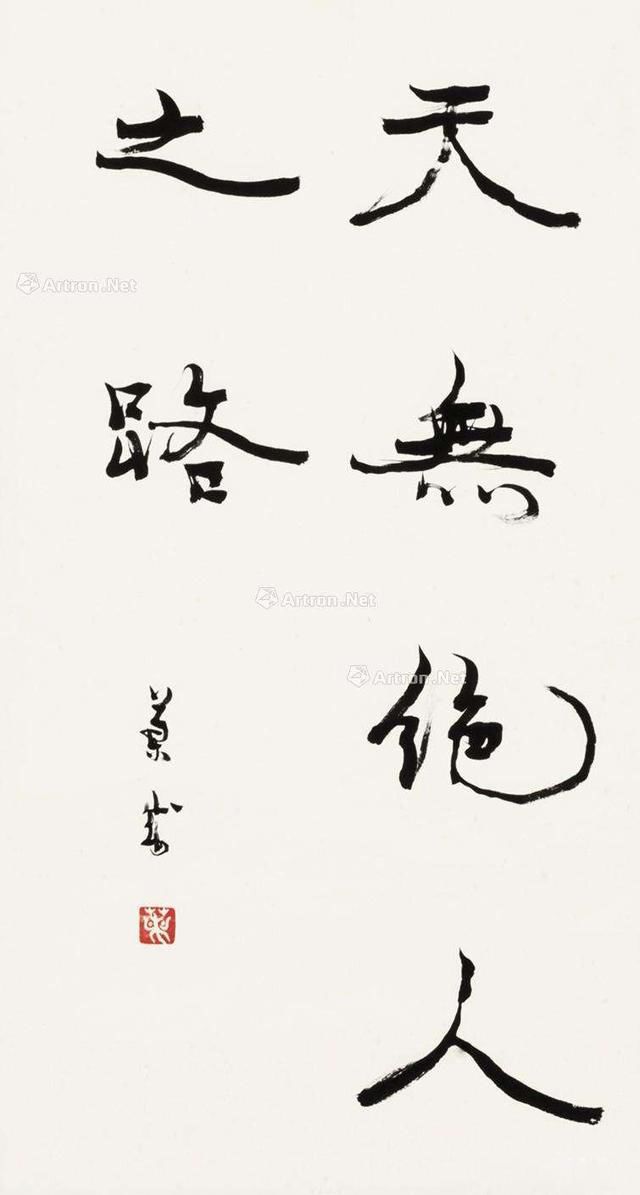 天無絶人
之路
Artron.Net
Artron.Net
Artron.Net